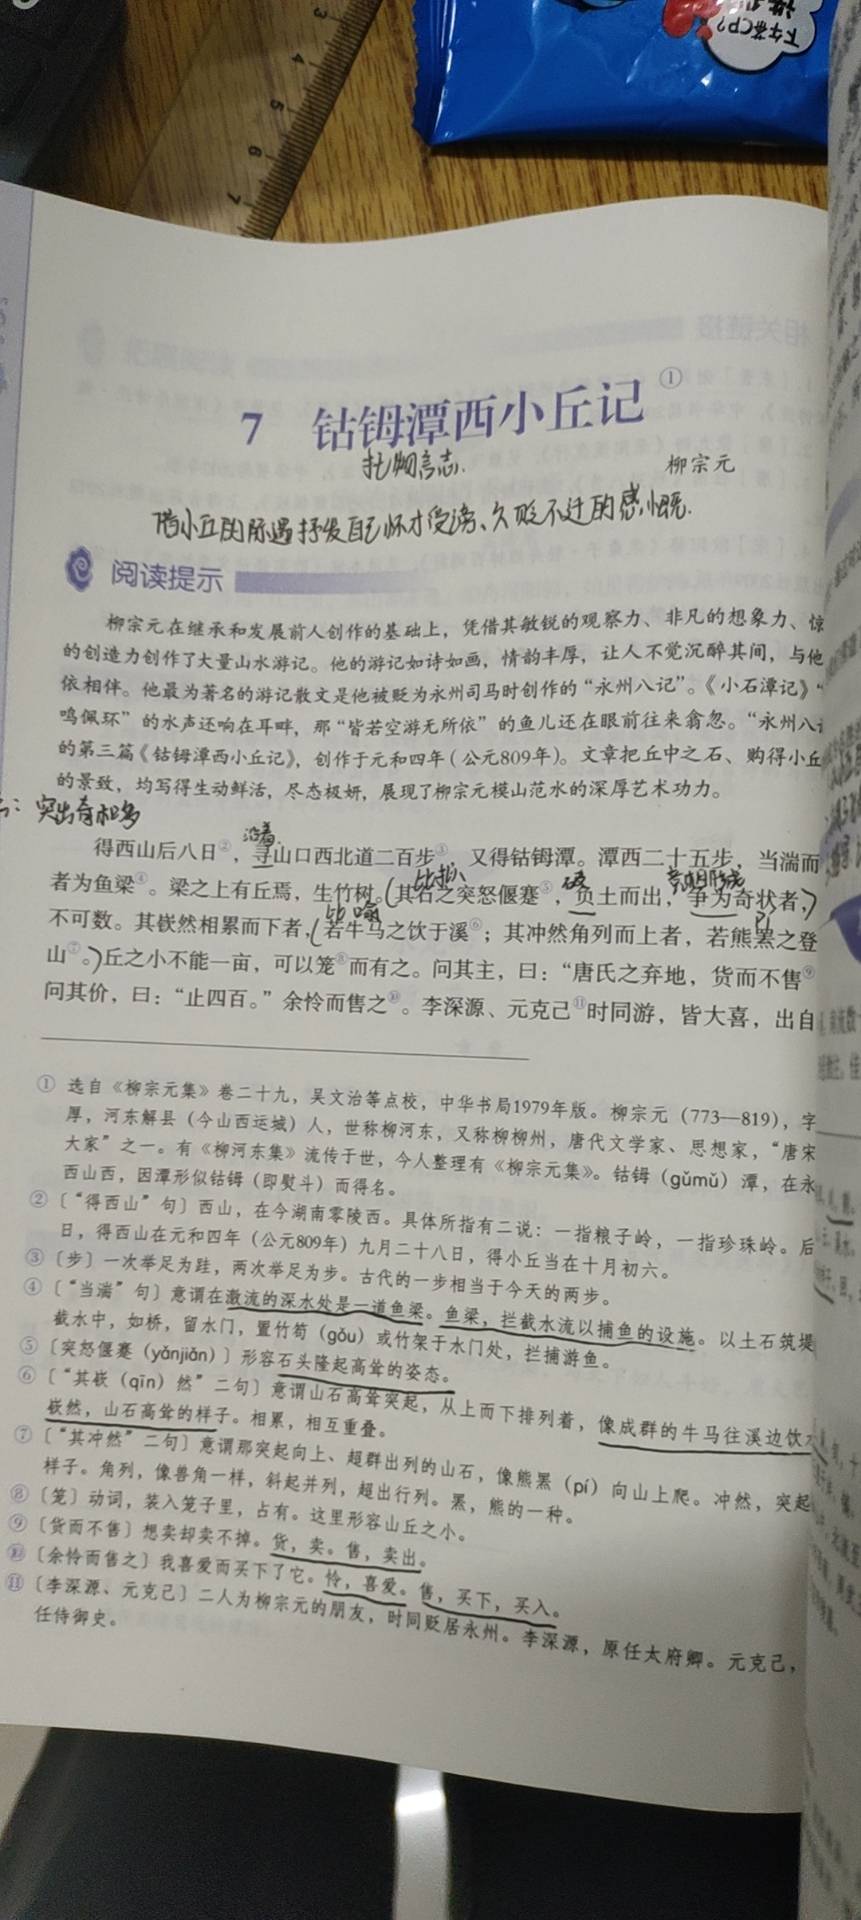 3
4
5
6
7
下午茶CP?
7 钴𬭁潭西小丘记①
托物言志.
柳宗元
借小丘的际遇抒发自己怀才受谤、久贬不迁的感慨.
阅读提示
柳宗元在继承和发展前人创作的基础上，凭借其敏锐的观察力、非凡的想象力、惊
的创造力创作了大量山水游记。他的游记如诗如画，情韵丰厚，让人不觉沉醉其间，与他
依相伴。他最为著名的游记散文是他被贬为永州司马时创作的“永州八记”。《小石潭记》“
鸣佩环”的水声还响在耳畔，那“皆若空游无所依”的鱼儿还在眼前往来翕忽。“永州八记
的第三篇《钴𬭁潭西小丘记》，创作于元和四年（公元809年）。文章把丘中之石、购得小丘
的景致，均写得生动鲜活，尽态极妍，展现了柳宗元模山范水的深厚艺术功力。
突出奇和多
沿着
得西山后八日②，寻山口西北道二百步③，又得钴𬭁潭。潭西二十五步，当湍而
比拟
者为鱼梁④。梁之上有丘焉，生竹树。(其石之突怒偃蹇⑤，负土而出，争为奇状者，)
比喻
不可数。其嵚然相累而下者，(若牛马之饮于溪⑥；其冲然角列而上者，若熊罴之登
山⑦。)丘之小不能一亩，可以笼⑧而有之。问其主，曰：“唐氏之弃地，货而不售⑨
问其价，曰：“止四百。”余怜而售之⑩。李深源、元克己⑪时同游，皆大喜，出自
① 选自《柳宗元集》卷二十九，吴文治等点校，中华书局1979年版。柳宗元（773—819），字
厚，河东解县（今山西运城）人，世称柳河东，又称柳柳州，唐代文学家、思想家，“唐宋
大家”之一。有《柳河东集》流传于世，今人整理有《柳宗元集》。钴𬭁（gǔmǔ）潭，在永
西山西，因潭形似钴𬭁（即熨斗）而得名。
② 〔“得西山”句〕西山，在今湖南零陵西。具体所指有二说：一指粮子岭，一指珍珠岭。后
日，得西山在元和四年（公元809年）九月二十八日，得小丘当在十月初六。
③ 〔步〕一次举足为跬，两次举足为步。古代的一步相当于今天的两步。
④ 〔“当湍”句〕意谓在激流的深水处是一道鱼梁。鱼梁，拦截水流以捕鱼的设施。以土石筑堤
截水中，如桥，留水门，置竹笱（gǒu）或竹架于水门处，拦捕游鱼。
⑤ 〔突怒偃蹇（yǎnjiǎn）〕形容石头隆起高耸的姿态。
⑥ 〔“其嵚（qīn）然”二句〕意谓山石高耸突起，从上而下排列着，像成群的牛马往溪边饮水
嵚然，山石高耸的样子。相累，相互重叠。
⑦ 〔“其冲然”二句〕意谓那突起向上、超群出列的山石，像熊罴（pí）向山上爬。冲然，突起
样子。角列，像兽角一样，斜起并列，超出行列。罴，熊的一种。
⑧ 〔笼〕动词，装入笼子里，占有。这里形容山丘之小。
⑨ 〔货而不售〕想卖却卖不掉。货，卖。售，卖出。
⑩ 〔余怜而售之〕我喜爱而买下了它。怜，喜爱。售，买下，买入。
⑪ 〔李深源、元克己〕二人为柳宗元的朋友，时同贬居永州。李深源，原任太府卿。元克己，
任侍御史。